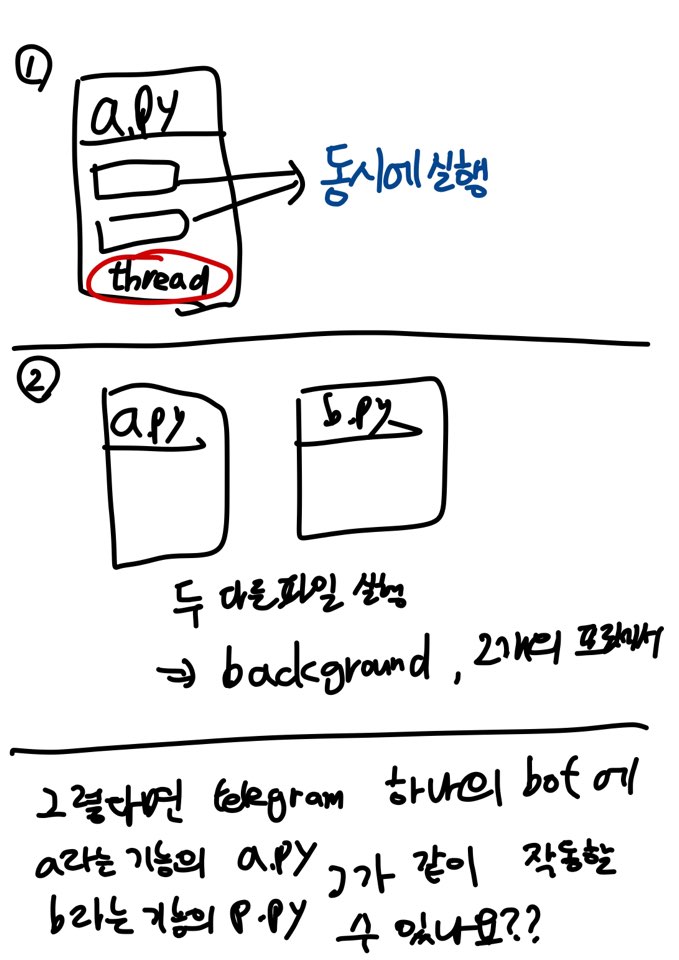 ①
a.py
동시에 실행
thread
②
a.py b.py
두 다른파일 실행
⇒ background, 2개의 프로세서
그렇다면 telegram 하나의 bot에
a라는 기능의 a.py 가 같이 작동할
b라는 기능의 p.py 수 있나요??